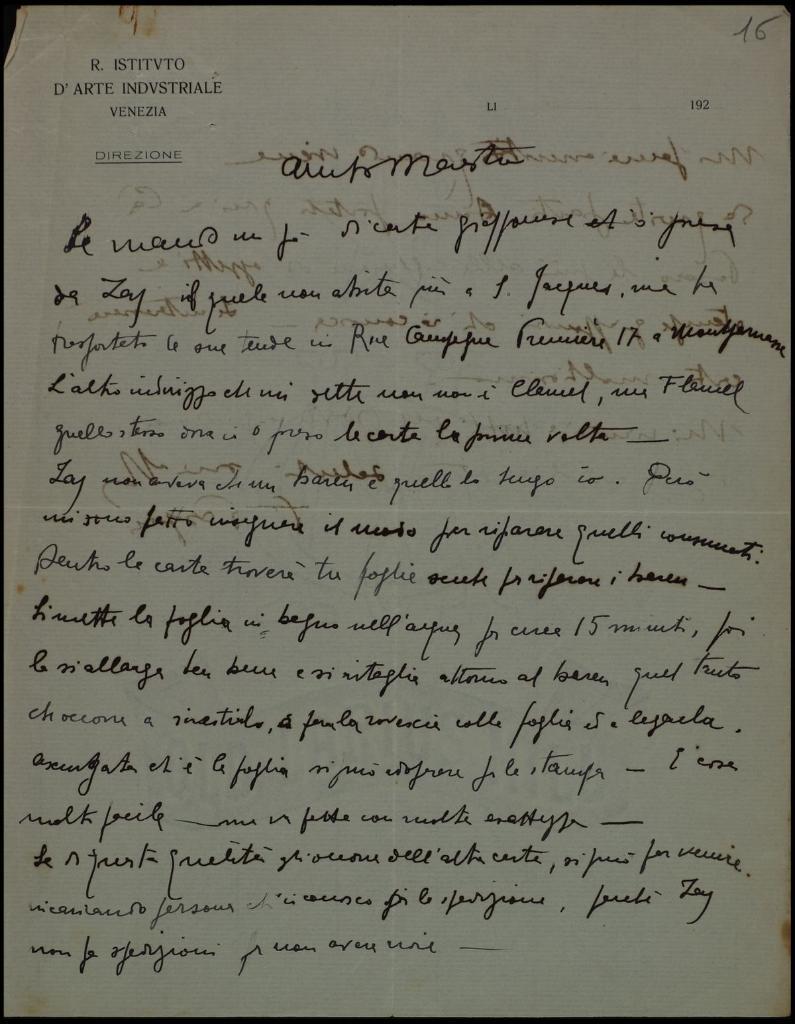 16
R. ISTITVTO
D'ARTE INDVSTRIALE
VENEZIA
LI 192
DIREZIONE
Amico Maestro
Le mando un pò di carta giapponese ch'ò presa
da Zay il quale non abita più a S. Jacques, ma ha
trasportato le sue tende in Rue Campagne Première 17 a Montparnasse
L'altro indirizzo che mi dette non non è Clamel, ma Flamel
quello stesso dove ò preso la carta la prima volta —
Zay non aveva che un baren e quello lo tengo io. Però
mi sono fatto insegnare il modo per riparare quelli consumati.
Dentro le carte troverà tre foglie secche per riparare i baren —
Si mette la foglia in bagno nell'acqua per circa 15 minuti, poi
la si allarga ben bene e si ritaglia attorno al baren quel tanto
che occorre a rivestirlo, a rovescia colla foglia ed a legarla.
asciugata ch'è la foglia si può adoperare per la stampa — È cosa
molto facile — ma va fatta con molta esattezza —
Se di questa qualità gli occorre dell'altra carta, si può far venire
incaricando persona ch'io conosco per la spedizione, perché Zay
non fa spedizioni per non avere noie —